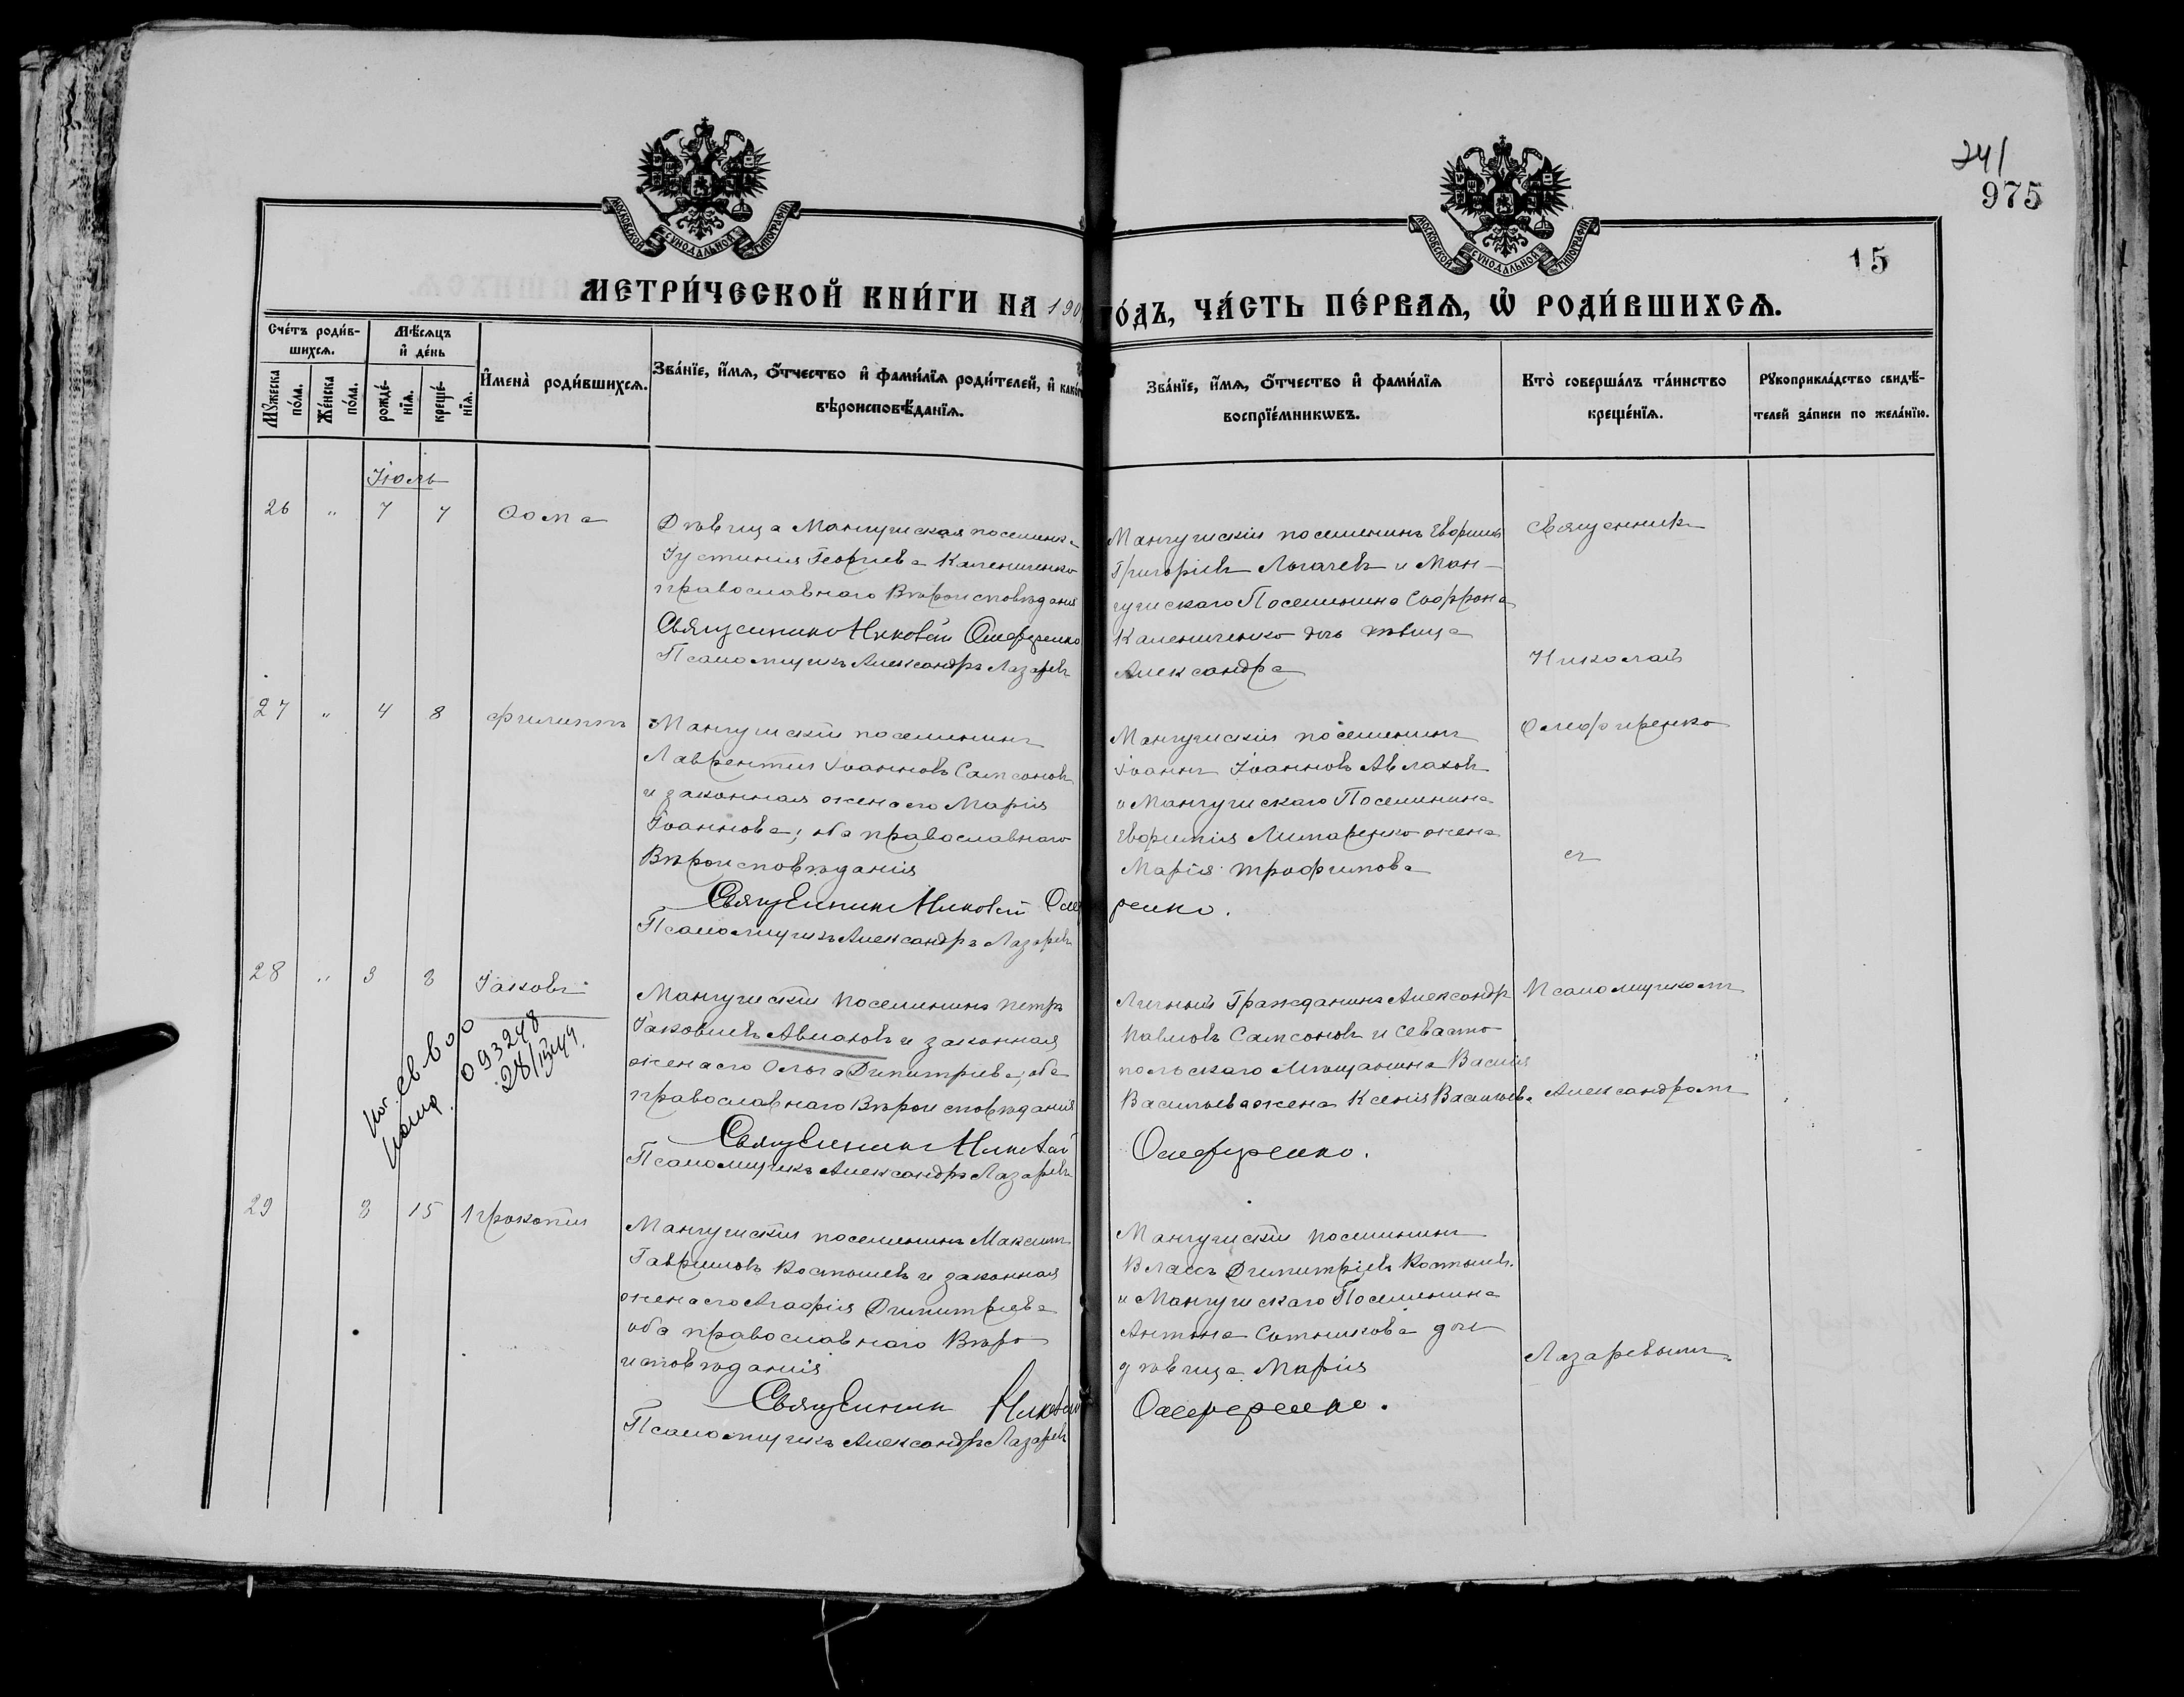 241
975
15
МОСКОВСКОЙ СУНОДАЛЬНОЙ ТИПОГРАФІИ
МОСКОВСКОЙ СУНОДАЛЬНОЙ ТИПОГРАФІИ
МЕТРИ́ЧЕСКОЙ КНИ́ГИ НА 190
О́ДЪ, ЧА́СТЬ ПЕ́РВАѦ, Ѡ҆ РОДИ́ВШИХСѦ.
Сче́тъ роди́в-
шихсѧ.
Мѣ́сѧцъ
и҆ де́нь
Мꙋжеска
по́ла.
Же́нска
по́ла.
рожде́-
нїѧ.
креще́-
нїѧ.
И҆мена̀ роди́вшихсѧ.
Зва́нїе, и҆́мѧ, ѻ҆́тчество и҆ фами́лїѧ роди́телей, и҆ како́г
вѣроисповѣ́данїѧ.
Зва́нїе, и҆́мѧ, ѻ҆́тчество и҆ фами́лїѧ
воспрїе́мникѡвъ.
Кто̀ соверша́лъ та́инство
креще́нїѧ.
Рꙋкоприкла́дство свидѣ́-
телей за́писи по жела́нїю.
Іюль
26 " 7 7 Ѳома
Дѣвица Мангушская поселянка
Іустинія Георгіева Калениченко
православнаго Вѣроисповѣданія
Священникъ Николай Олеференко
Псаломщикъ Александръ Лазаревъ
Мангушскій поселянинъ Евфимій
Григоріевъ Логачевъ и Ман-
гушскаго Поселянина Софрона
Калениченко дочь дѣвица
Александра
Священникъ
Николай
27 " 4 8 Филиппъ
Мангушскій поселянинъ
Лаврентій Іоанновъ Самсоновъ
и законная жена его Марія
Іоаннова; оба православнаго
Вѣроисповѣданія
Священникъ Николай Олефе
Псаломщикъ Александръ Лазаревъ
Мангушскій поселянинъ
Іоаннъ Іоанновъ Авлаховъ
и Мангушскаго Поселянина
Евфимія Литаренко жена
Марія Трофимова
ренко.
Олефиренко
съ
28 " 3 8 Іаковъ
093248
28/IV-49.
Мангушскій поселянинъ Петръ
Іаковлевъ Авлаховъ и законная
жена его Ольга Димитріева; оба
православнаго Вѣроисповѣданія
Священникъ Николай
Псаломщикъ Александръ Лазаревъ
Личный Гражданинъ Александръ
Павловъ Самсоновъ и Севасто
польскаго Мѣщанина Василія
Васильева жена Ксенія Васильева
Олеференко.
Псаломщикомъ
Александромъ
29 8 15 Прокопій
Мангушскій поселянинъ Максимъ
Гавриловъ Костылевъ и законная
жена его Агафія Димитріева
оба православнаго Вѣро
исповѣданія
Священникъ Николай
Псаломщикъ Александръ Лазаревъ
Мангушскій поселянинъ
Власъ Димитріевъ Костылевъ
и Мангушскаго Поселянина
Антона Сотникова дочь
дѣвица Марія
Олеференко.
Лазаревымъ.